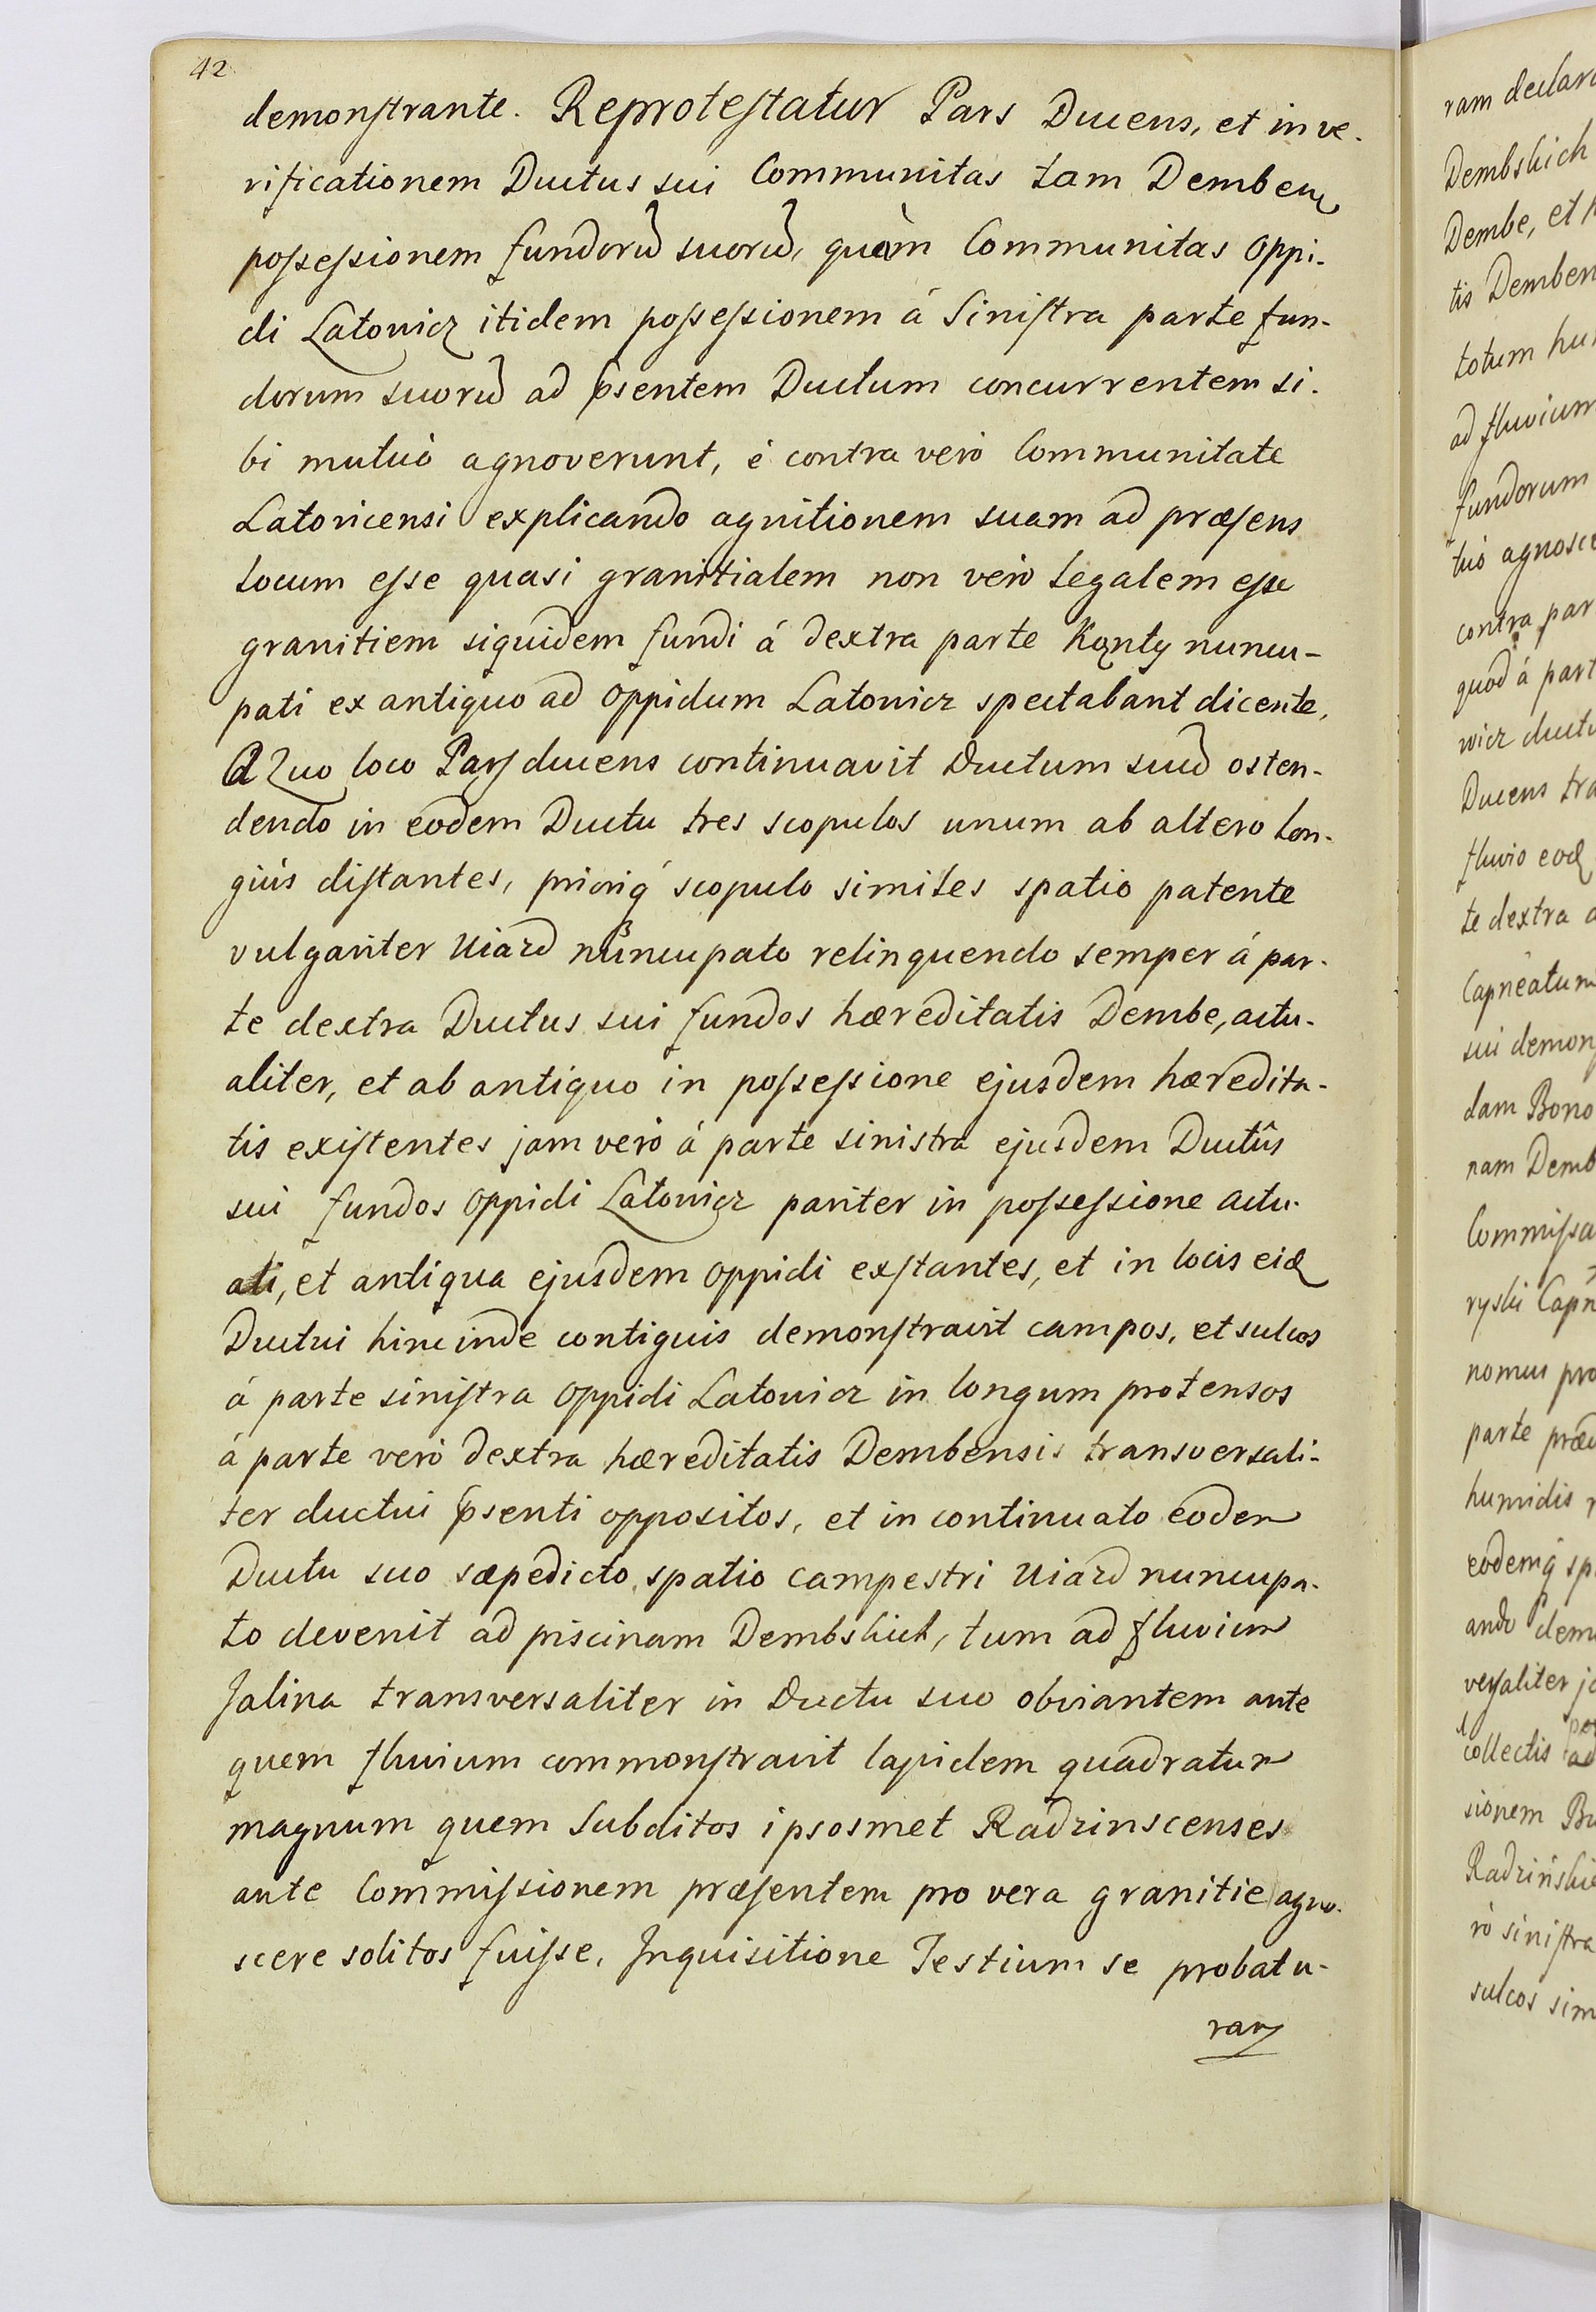 42
demonstrante. Reprotestatur Pars Ducens, et in ve-
rificationem Ductus sui Communitas tam Demben
possessionem fundorũ suorũ, quàm Communitas Oppi-
di Latowicz itidem possessionem á Sinistra parte fun-
dorum suorũ ad psentem Ductum concurrentem si-
bi mutuò agnoverunt, é contra verò Communitate
Latovicensi explicando agnitionem suam ad præsens
locum esse quasi granitialem non verò legalem esse
granitiem siquidem fundi á dextra parte Kąnty nuncu-
pati ex antiquo ad Oppidum Latowicz spectabant dicente,
A Quo loco Pars ducens continuavit Ductum suũ osten-
dendo in eodem Ductu tres scopulos unum ab altero lon-
giús distantes, prioriq́ scopulo similes spatio patente
vulgariter Uiazd nuncupato relinquendo semper á par-
te dextra Ductus sui fundos hæreditatis Dembe, actu-
aliter, et ab antiquo in possessione ejusdem hæredita-
tis existentes jam verò á parte sinistra ejusdem Ductûs
sui fundos Oppidi Latowicz pariter in possessione actu-
ali, et antiqua ejusdem Oppidi exstantes, et in locis eid
Ductui hinc inde contiguis demonstravit campos, et sulcos
á parte sinistra Oppidi Latowicz in longum protensos
á parte verò dextra hæreditatis Dembensis transversali-
ter ductui psenti oppositos, et in continuato eodem
Ductu suo sæpedicto spatio campestri Uiazd nuncupa-
to devenit ad piscinam Dembskich, tum ad fluvium
Jalina transversaliter in Ductu suo obviantem ante
quem fluvium commonstravit lapidem quadratum
magnum quem Subditos ipsosmet Radzinscenses
ante Commissionem præsentem pro vera granitie agno-
scere solitos fuisse, Inquisitione Testium se probatu-
ram
ram declara
Dembskich
Dembe, et
tis Demben
totum hu
ad fluvium
fundorum
tuò agnosce
contra par
quod á part
wicz ductu
Ducens tra
fluvio eod
te dextra
Capneatum
sui demon
dam Bono
nam Demb
Commissa
ryski Capn
nomus pro
parte præ
humidis
eodemq́ sp
ando dem
versaliter
collectis ad
sionem Bu
Radzińskie
rò sinistra
sulcos sim